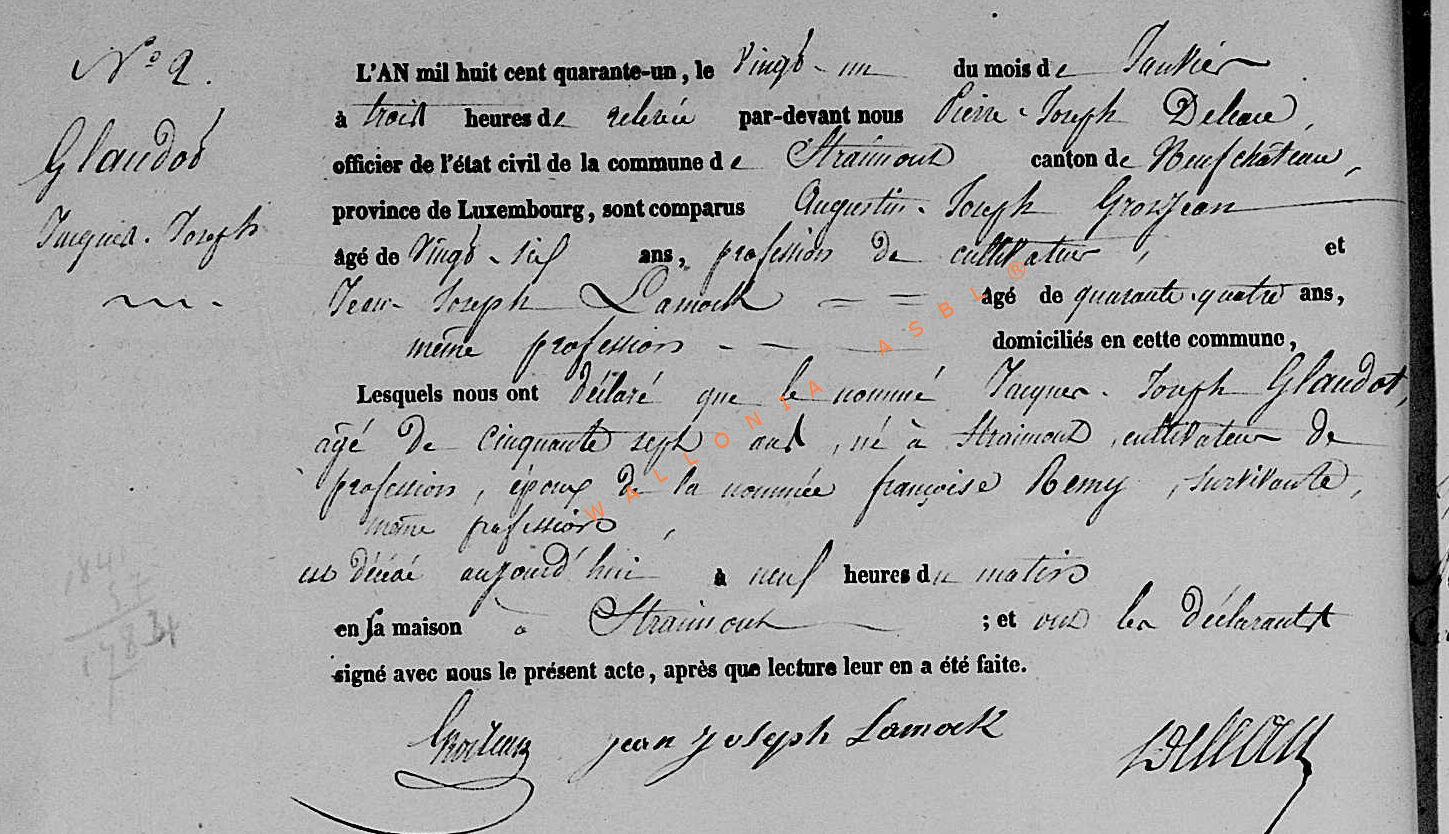 N° 2.
Glaudot
Jacques-Joseph
L'AN mil huit cent quarante-un, le vingt-un du mois de Janvier
à trois heures de relevée par-devant nous Pierre-Joseph
officier de l'état civil de la commune de Straimont canton de Neufchâteau,
province de Luxembourg, sont comparus Augustin-Joseph Grosjean
âgé de vingt-six ans, profession de cultivateur, et
Jean-Joseph Lamock âgé de quarante-quatre ans,
même profession domiciliés en cette commune,
Lesquels nous ont déclaré que le nommé Jacques-Joseph Glaudot,
âgé de cinquante sept ans, né à Straimont, cultivateur de
profession, époux de la nommée françoise Remy, survivante,
même profession,
est décédé aujourd'hui à neuf heures du matin
en sa maison à Straimont ; et ont les déclarants
signé avec nous le présent acte, après que lecture leur en a été faite.
1841
57
1784
Grosjean jean joseph Lamock
WALLONIA ASBL ®